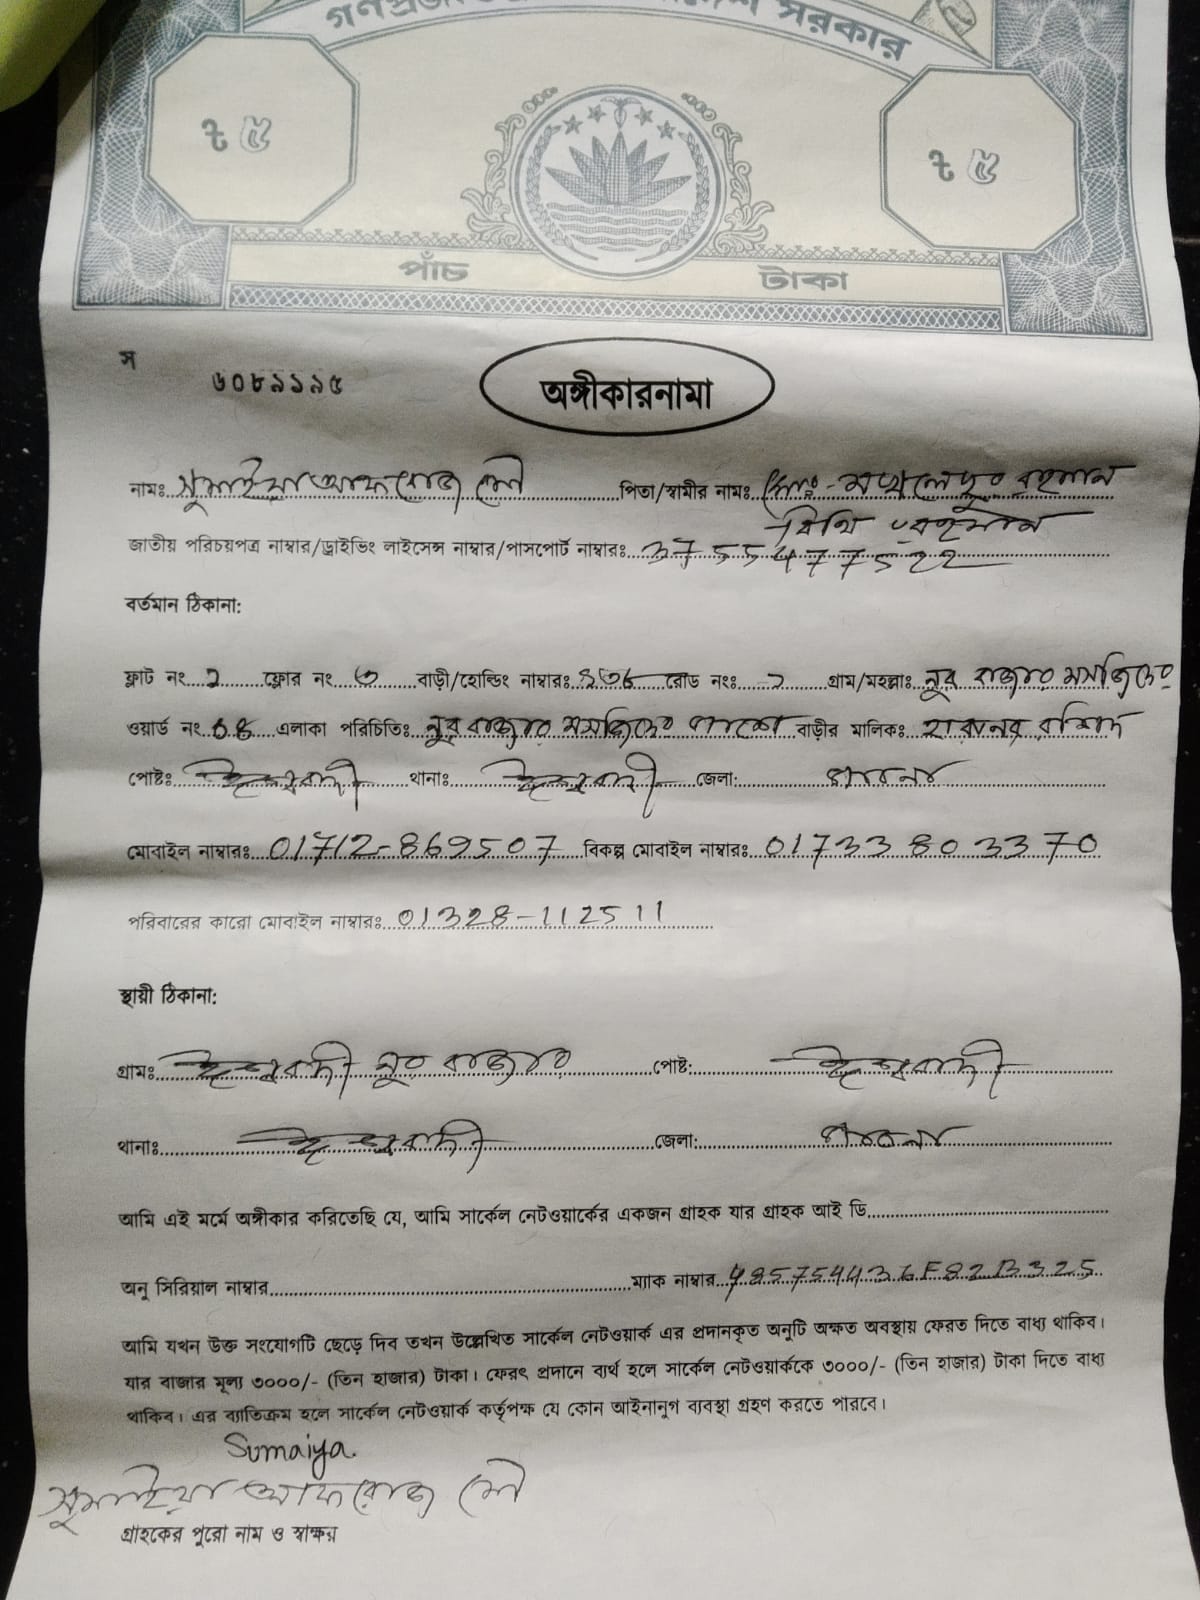 সরকার
৳ ৫
৳ ৫
পাঁচ টাকা
স
৬০৮৯১৯৫
অঙ্গীকারনামা
নামঃ সুমাইয়া আফরোজ মৌ পিতা/স্বামীর নামঃ মোঃ- মখলেছুর রহমান
বিথি রহমান
জাতীয় পরিচয়পত্র নাম্বার/ড্রাইভিং লাইসেন্স নাম্বার/পাসপোর্ট নাম্বারঃ 3755477522
বর্তমান ঠিকানা:
ফ্লাট নং ২ ফ্লোর নং ৩ বাড়ী/হোল্ডিং নাম্বারঃ রোড নংঃ ২ গ্রাম/মহল্লাঃ নুর বাজার মসজিদের
ওয়ার্ড নং ০৪ এলাকা পরিচিতিঃ নুর বাজার মসজিদের পাশে বাড়ীর মালিকঃ হারুনর রশিদ
পোষ্টঃ ঈশ্বরদী থানাঃ ঈশ্বরদী জেলা: পাবনা
মোবাইল নাম্বারঃ 01712-869507 বিকল্প মোবাইল নাম্বারঃ 01733803370
পরিবারের কারো মোবাইল নাম্বারঃ 01328-112511
স্থায়ী ঠিকানা:
গ্রামঃ ঈশ্বরদী নুর বাজার পোষ্ট: ঈশ্বরদী
থানাঃ ঈশ্বরদী জেলা: পাবনা
আমি এই মর্মে অঙ্গীকার করিতেছি যে, আমি সার্কেল নেটওয়ার্কের একজন গ্রাহক যার গ্রাহক আই ডি
অনু সিরিয়াল নাম্বার ম্যাক নাম্বার 485754436F82B325
আমি যখন উক্ত সংযোগটি ছেড়ে দিব তখন উল্লেখিত সার্কেল নেটওয়ার্ক এর প্রদানকৃত অনুটি অক্ষত অবস্থায় ফেরত দিতে বাধ্য থাকিব।
যার বাজার মূল্য ৩০০০/- (তিন হাজার) টাকা। ফেরৎ প্রদানে ব্যর্থ হলে সার্কেল নেটওয়ার্ককে ৩০০০/- (তিন হাজার) টাকা দিতে বাধ্য
থাকিব। এর ব্যাতিক্রম হলে সার্কেল নেটওয়ার্ক কর্তৃপক্ষ যে কোন আইনানুগ ব্যবস্থা গ্রহণ করতে পারবে।
Sumaiya
সুমাইয়া আফরোজ মৌ
গ্রাহকের পুরো নাম ও স্বাক্ষর